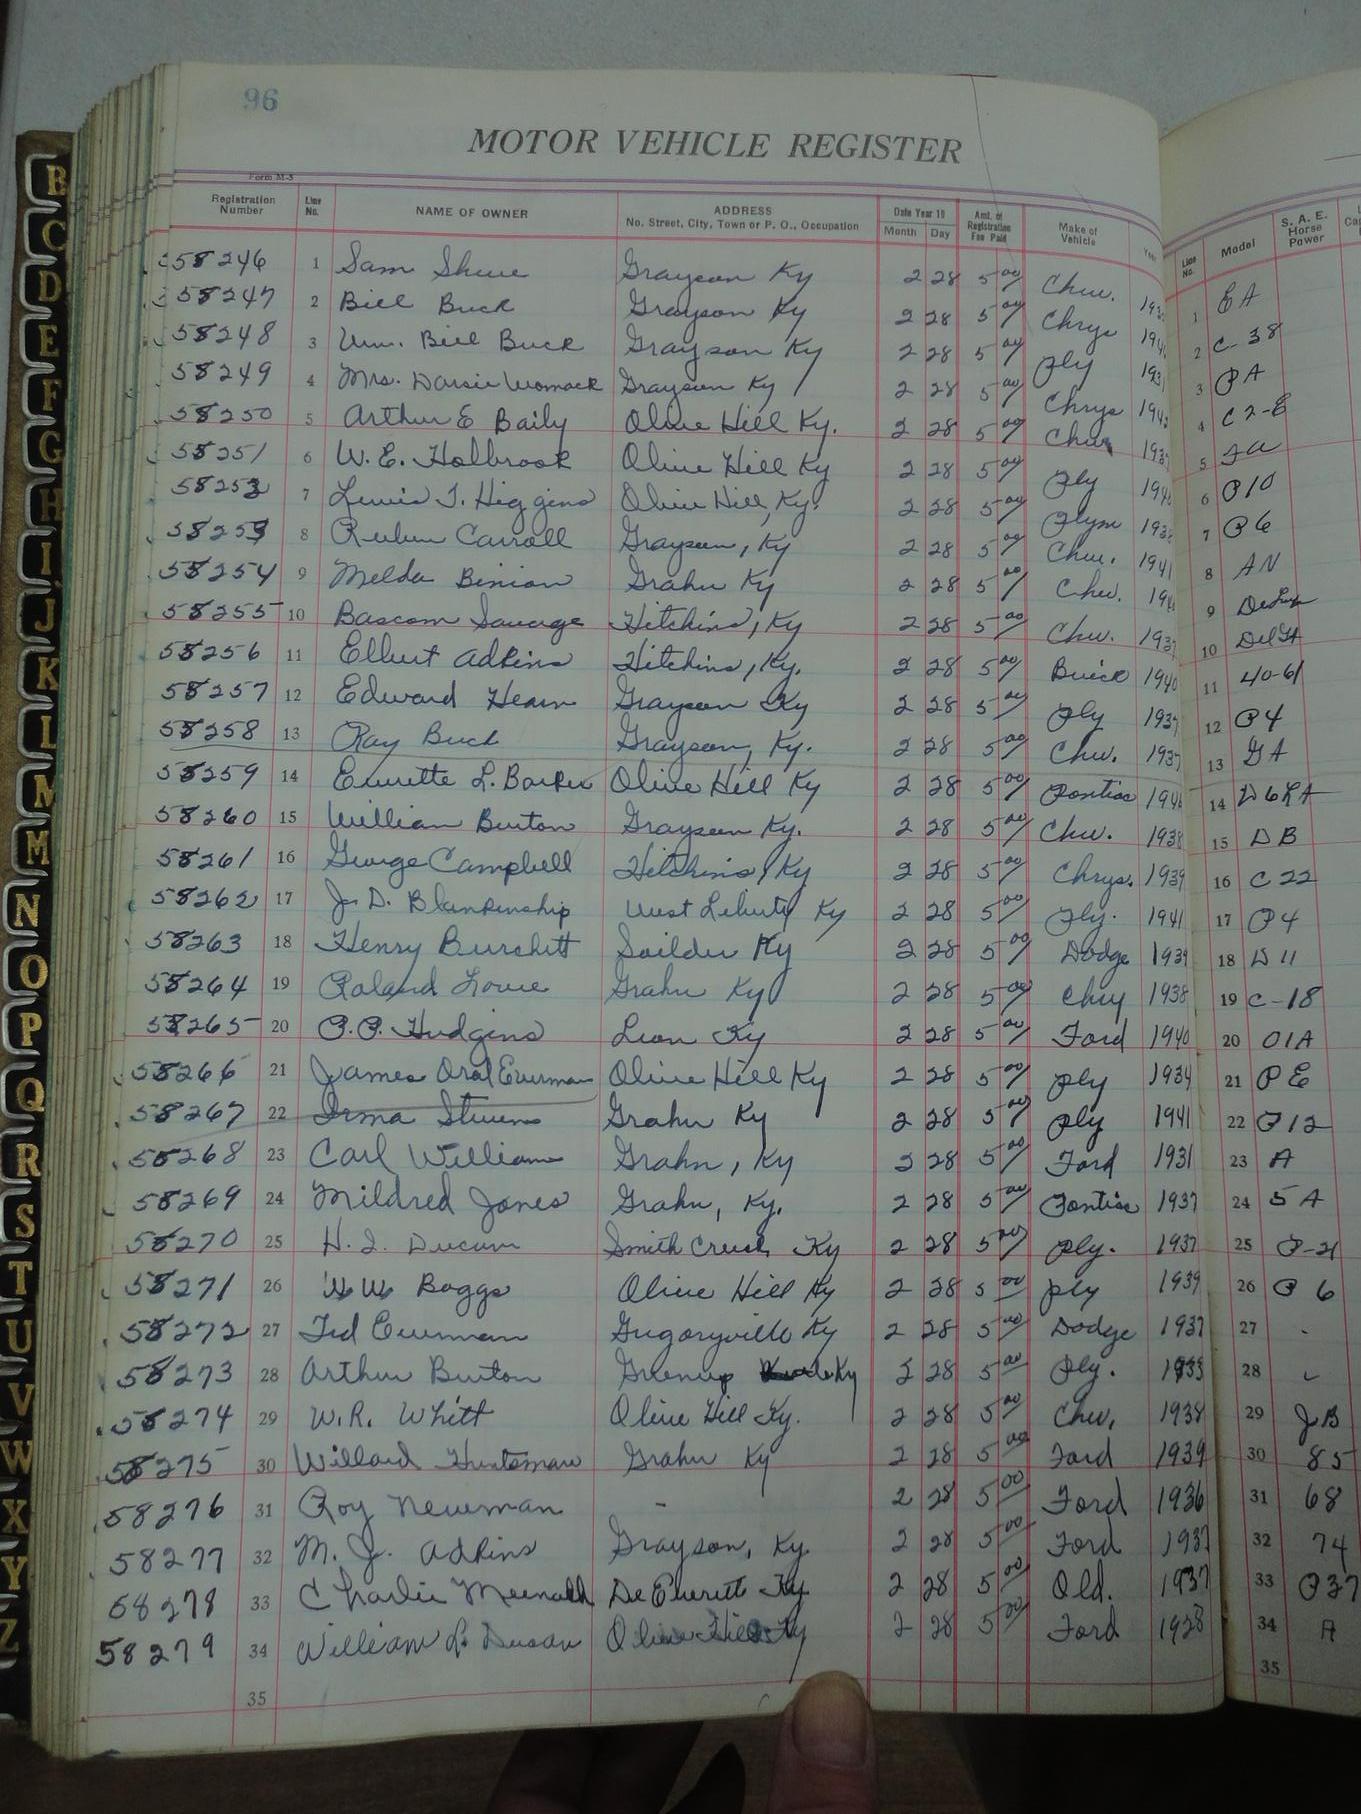 96
MOTOR VEHICLE REGISTER
Form M-5
Registration Number Line No. NAME OF OWNER ADDRESS No. Street, City, Town or P. O., Occupation Date Year 19 Month Day Amt. of Registration Fee Paid Make of Vehicle Year Line No. Model S. A. E. Horse Power
58246 1 Sam Grayson Ky 2 28 5 00 Chev. 1 EA
58247 2 Bill Buck Grayson Ky 2 28 5 00 Chrys 2 C-38
58248 3 Wm. Bill Buck Grayson Ky 2 28 5 00 Ply 3 PA
58249 4 Mrs. Womack Grayson Ky 2 28 5 00 Chrys 4 C2-8
58250 5 Arthur E Baily Olive Hill Ky. 2 28 5 00 Chev 5
58251 6 W. E. Holbrook Olive Hill Ky 2 28 5 00 Ply 6 P10
58252 7 Lewis T. Higgins Olive Hill, Ky. 2 28 5 00 Plym 7 P6
58253 8 Ruben Carroll Grayson, Ky 2 28 5 00 Chev. 1941 8 AN
58254 9 Melda Binion Grahn Ky 2 28 5 00 Chev. 9
58255 10 Bascom Savage Hitchins, Ky 2 28 5 00 Chev. 1937 10
58256 11 Elbert Adkins Hitchins, Ky. 2 28 5 00 Buick 1940 11 40-61
58257 12 Edward Hearn Grayson Ky 2 28 5 00 Ply 1937 12 P4
58258 13 Ray Buck Grayson, Ky. 2 28 5 00 Chev. 1937 13 GA
58259 14 Everette L. Barker Olive Hill Ky 2 28 5 00 Pontiac 14
58260 15 William Burton Grayson Ky. 2 28 5 00 Chev. 1938 15 DB
58261 16 George Campbell Hitchins, Ky 2 28 5 00 Chrys. 1939 16 C 22
58262 17 J. D. Blankenship West Liberty Ky 2 28 5 00 Ply. 1941 17 P4
58263 18 Henry Burchett Soilder Ky 2 28 5 00 Dodge 1939 18 D 11
58264 19 Roland Lowe Grahn Ky 2 28 5 00 Chry 1938 19 C-18
58265 20 P. P. Hudgins Leon Ky 2 28 5 00 Ford 1940 20 01A
58266 21 James Oral Everman Olive Hill Ky 2 28 5 00 Ply 1934 21 PE
58267 22 Irma Stevens Grahn Ky 2 28 5 00 Ply 1941 22 P12
58268 23 Carl William Grahn, Ky 2 28 5 00 Ford 1931 23 A
58269 24 Mildred Jones Grahn, Ky. 2 28 5 00 Pontiac 1937 24 5 A
58270 25 H. I. Smith Creek, Ky 2 28 5 00 Ply. 1937 25
58271 26 W W Boggs Olive Hill Ky 2 28 5 00 Ply 1939 26 P 6
58272 27 Ted Everman Gregoryville Ky 2 28 5 00 Dodge 1937 27
58273 28 Arthur Burton Greenup Ky 2 28 5 00 Ply. 1933 28
58274 29 W. R. Whitt Olive Hill Ky. 2 28 5 00 Chev. 1938 29 JB
58275 30 Willard Huntsman Grahn Ky 2 28 5 00 Ford 1939 30 85
58276 31 Roy Newman - 2 28 5 00 Ford 1936 31 68
58277 32 M. J. Adkins Grayson, Ky. 2 28 5 00 Ford 1937 32 74
58278 33 Charlie De Everett Ky 2 28 5 00 Old. 1937 33
58279 34 William L. Olive Hill Ky 2 28 5 00 Ford 1928 34 A
35 35
B
C
D
E
F
G
H
I
J
K
L
M
M
N
O
P
Q
R
S
T
U
V
W
X
Y
Z